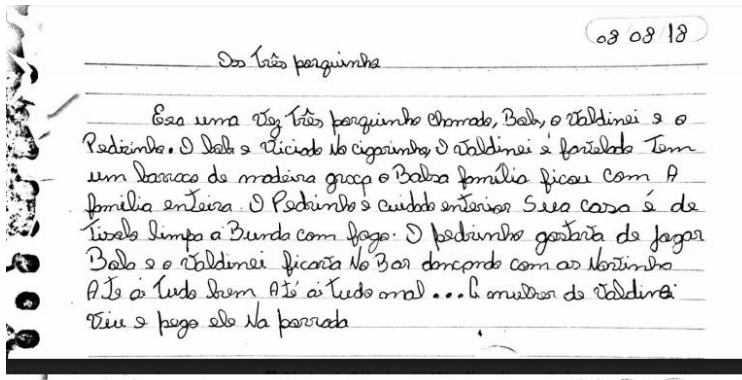 08 08 18
Dos Três porquinho
Era uma Vez Três porquinho chamado, Bob, o Valdinei e o
Pedrinho. O bob e viciado No cigarinho, O Valdinei é favelado Tem
um barraco de madeira graça o Balsa família ficou com A
família enteira. O Pedrinho e cuidado enterior Sua casa é de
Tijolo limpa a Bunda com fogo. O pedrinho gostava de jogar
Bola e o Valdinei ficava No Bar dançando com as Novinha
ATe ai Tudo bem ATé ai tudo mal... A mulher do Valdinei
Viu e pego ele Na porrada